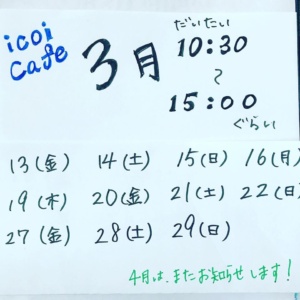 icoi
cafe
3月
だいたい
10:30
〜
15:00
ぐらい
13(金) 14(土) 15(日) 16(月)
19(木) 20(金) 21(土) 22(日)
27(金) 28(土) 29(日)
4月は、またお知らせします!